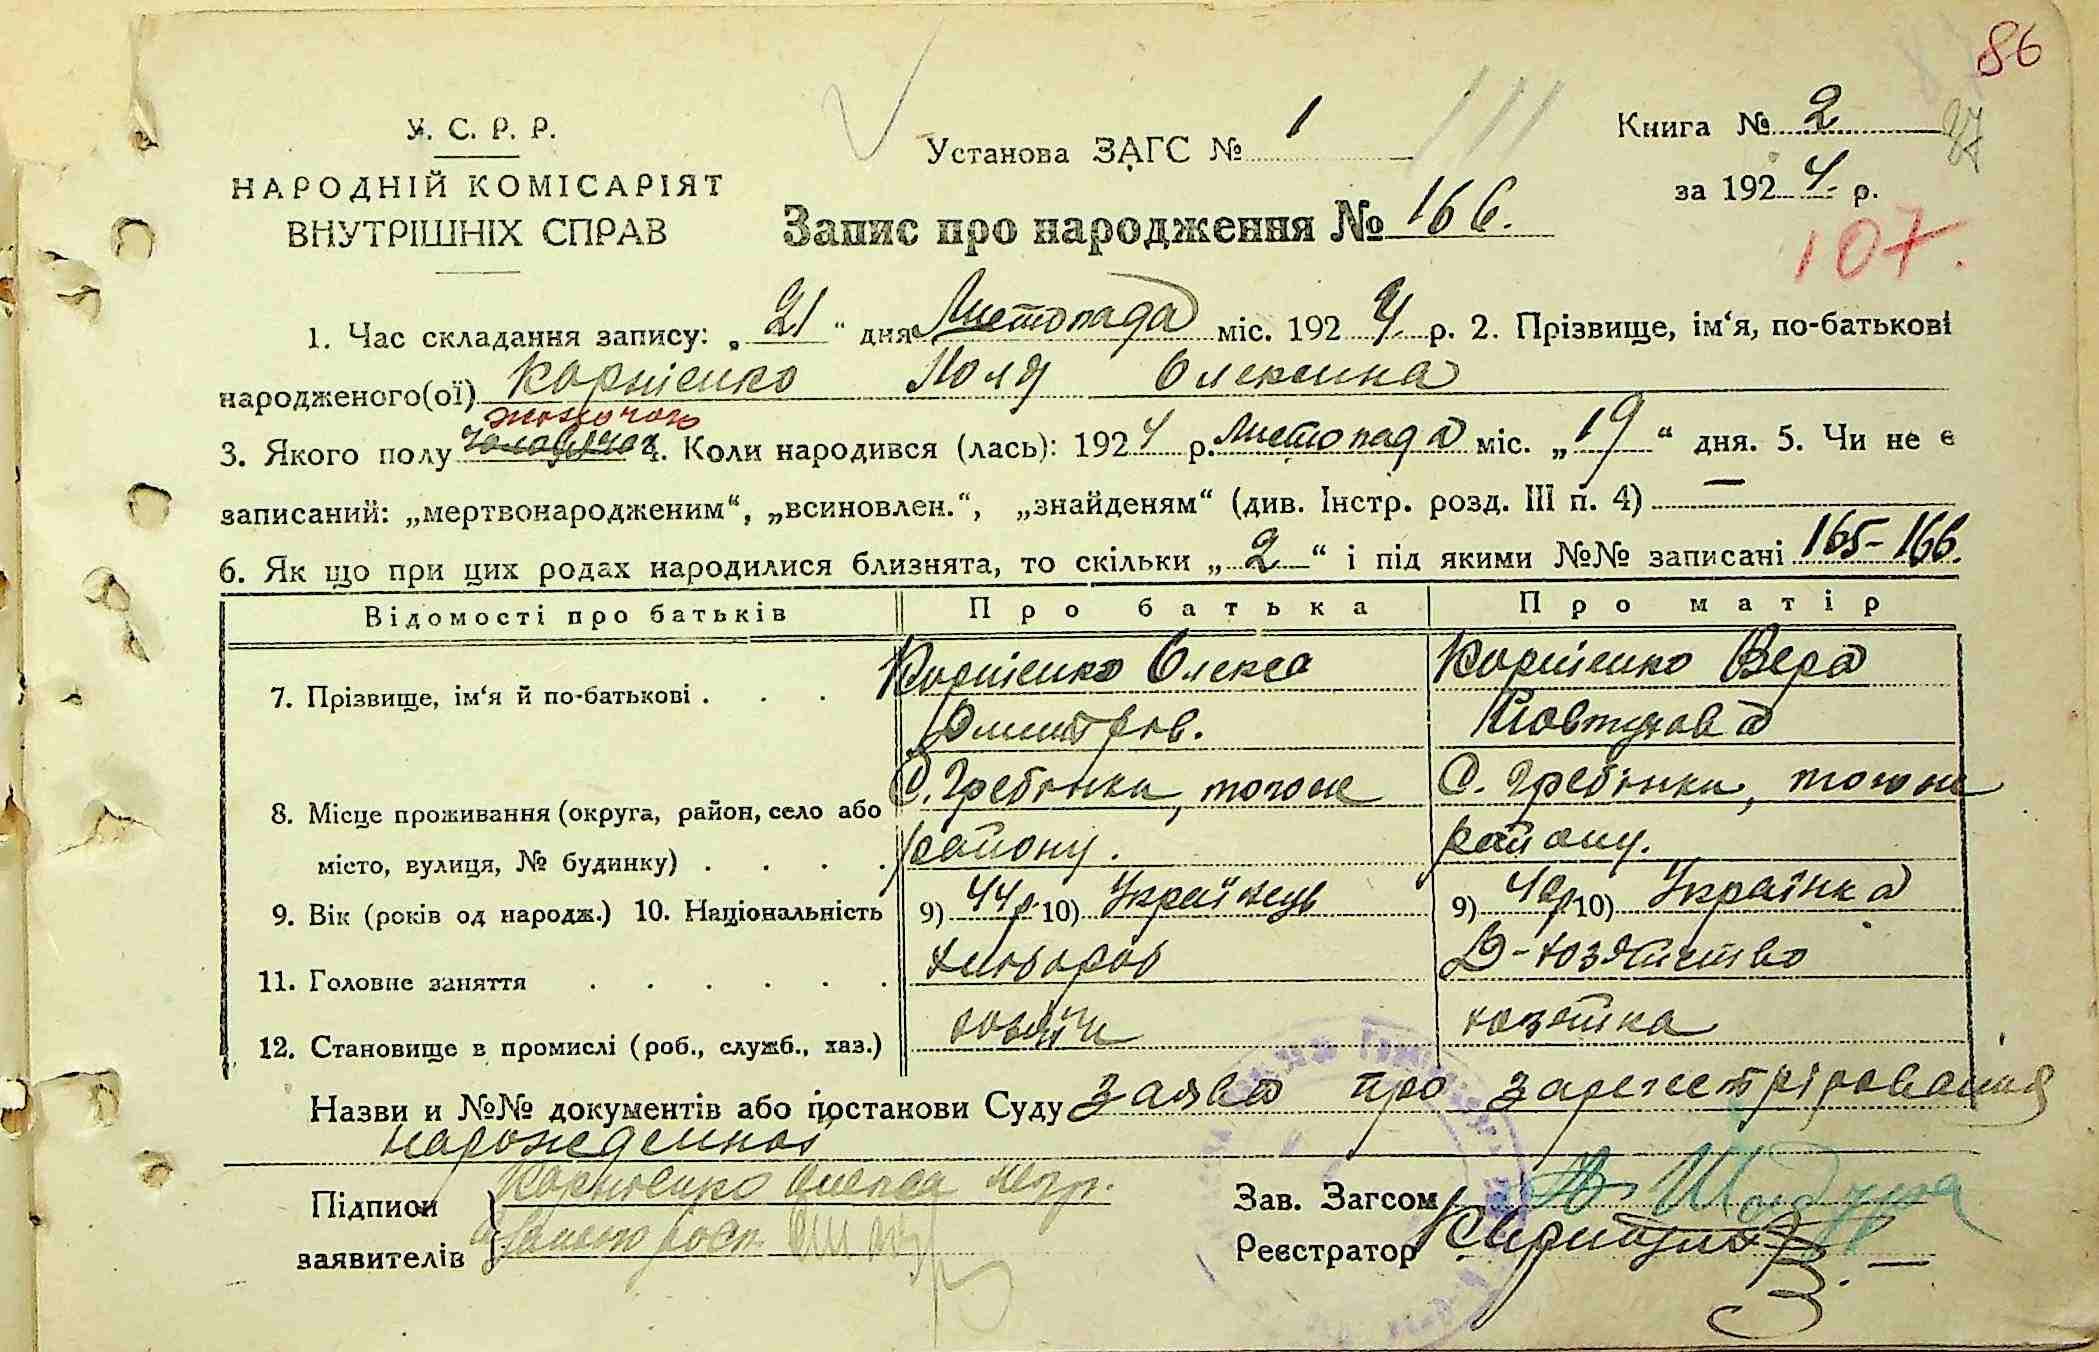 86
У. С. Р. Р.
НАРОДНІЙ КОМІСАРІЯТ
ВНУТРІШНІХ СПРАВ
Установа ЗАГС № 1
Книга № 2
за 1924 р.
107.
Запис про народження № 166.
1. Час складання запису: „21“ дня Листопада міс. 1924 р. 2. Прізвище, ім‘я, по-батькові
народженого(ої) Корнієнко Поля Олексина
жоночого
3. Якого полу 4. Коли народився (лась): 1924 р. Листопада міс. „19“ дня. 5. Чи не є
записаний: „мертвонародженим“, „всиновлен.“, „знайденям“ (див. Інстр. розд. III п. 4) —
6. Як що при цих родах народилися близнята, то скільки „2“ і під якими №№ записані 165-166.
Відомості про батьків Про батька Про матір
7. Прізвище, ім‘я й по-батькові . . . Корнієнко Олекса Корнієнко Вера
Дмитров. Ковтунова
С. Гребінки, тогоже С. Гребінки, тогоже
8. Місце проживання (округа, район, село або
місто, вулиця, № будинку) . . . . району. району.
9. Вік (років од народж.) 10. Національність 9) 44р. 10) Українець 9) 40р. 10) Українка
11. Головне заняття . . . . . . хлібороб Д-хозяйство
12. Становище в промислі (роб., служб., хаз.) хозяїн хозяйка
Назви и №№ документів або постанови Суду Заява про зарегистріровання
нарожденной
Підписи
заявителів
Корнієнко Олекса
Зав. Загсом
Реєстратор